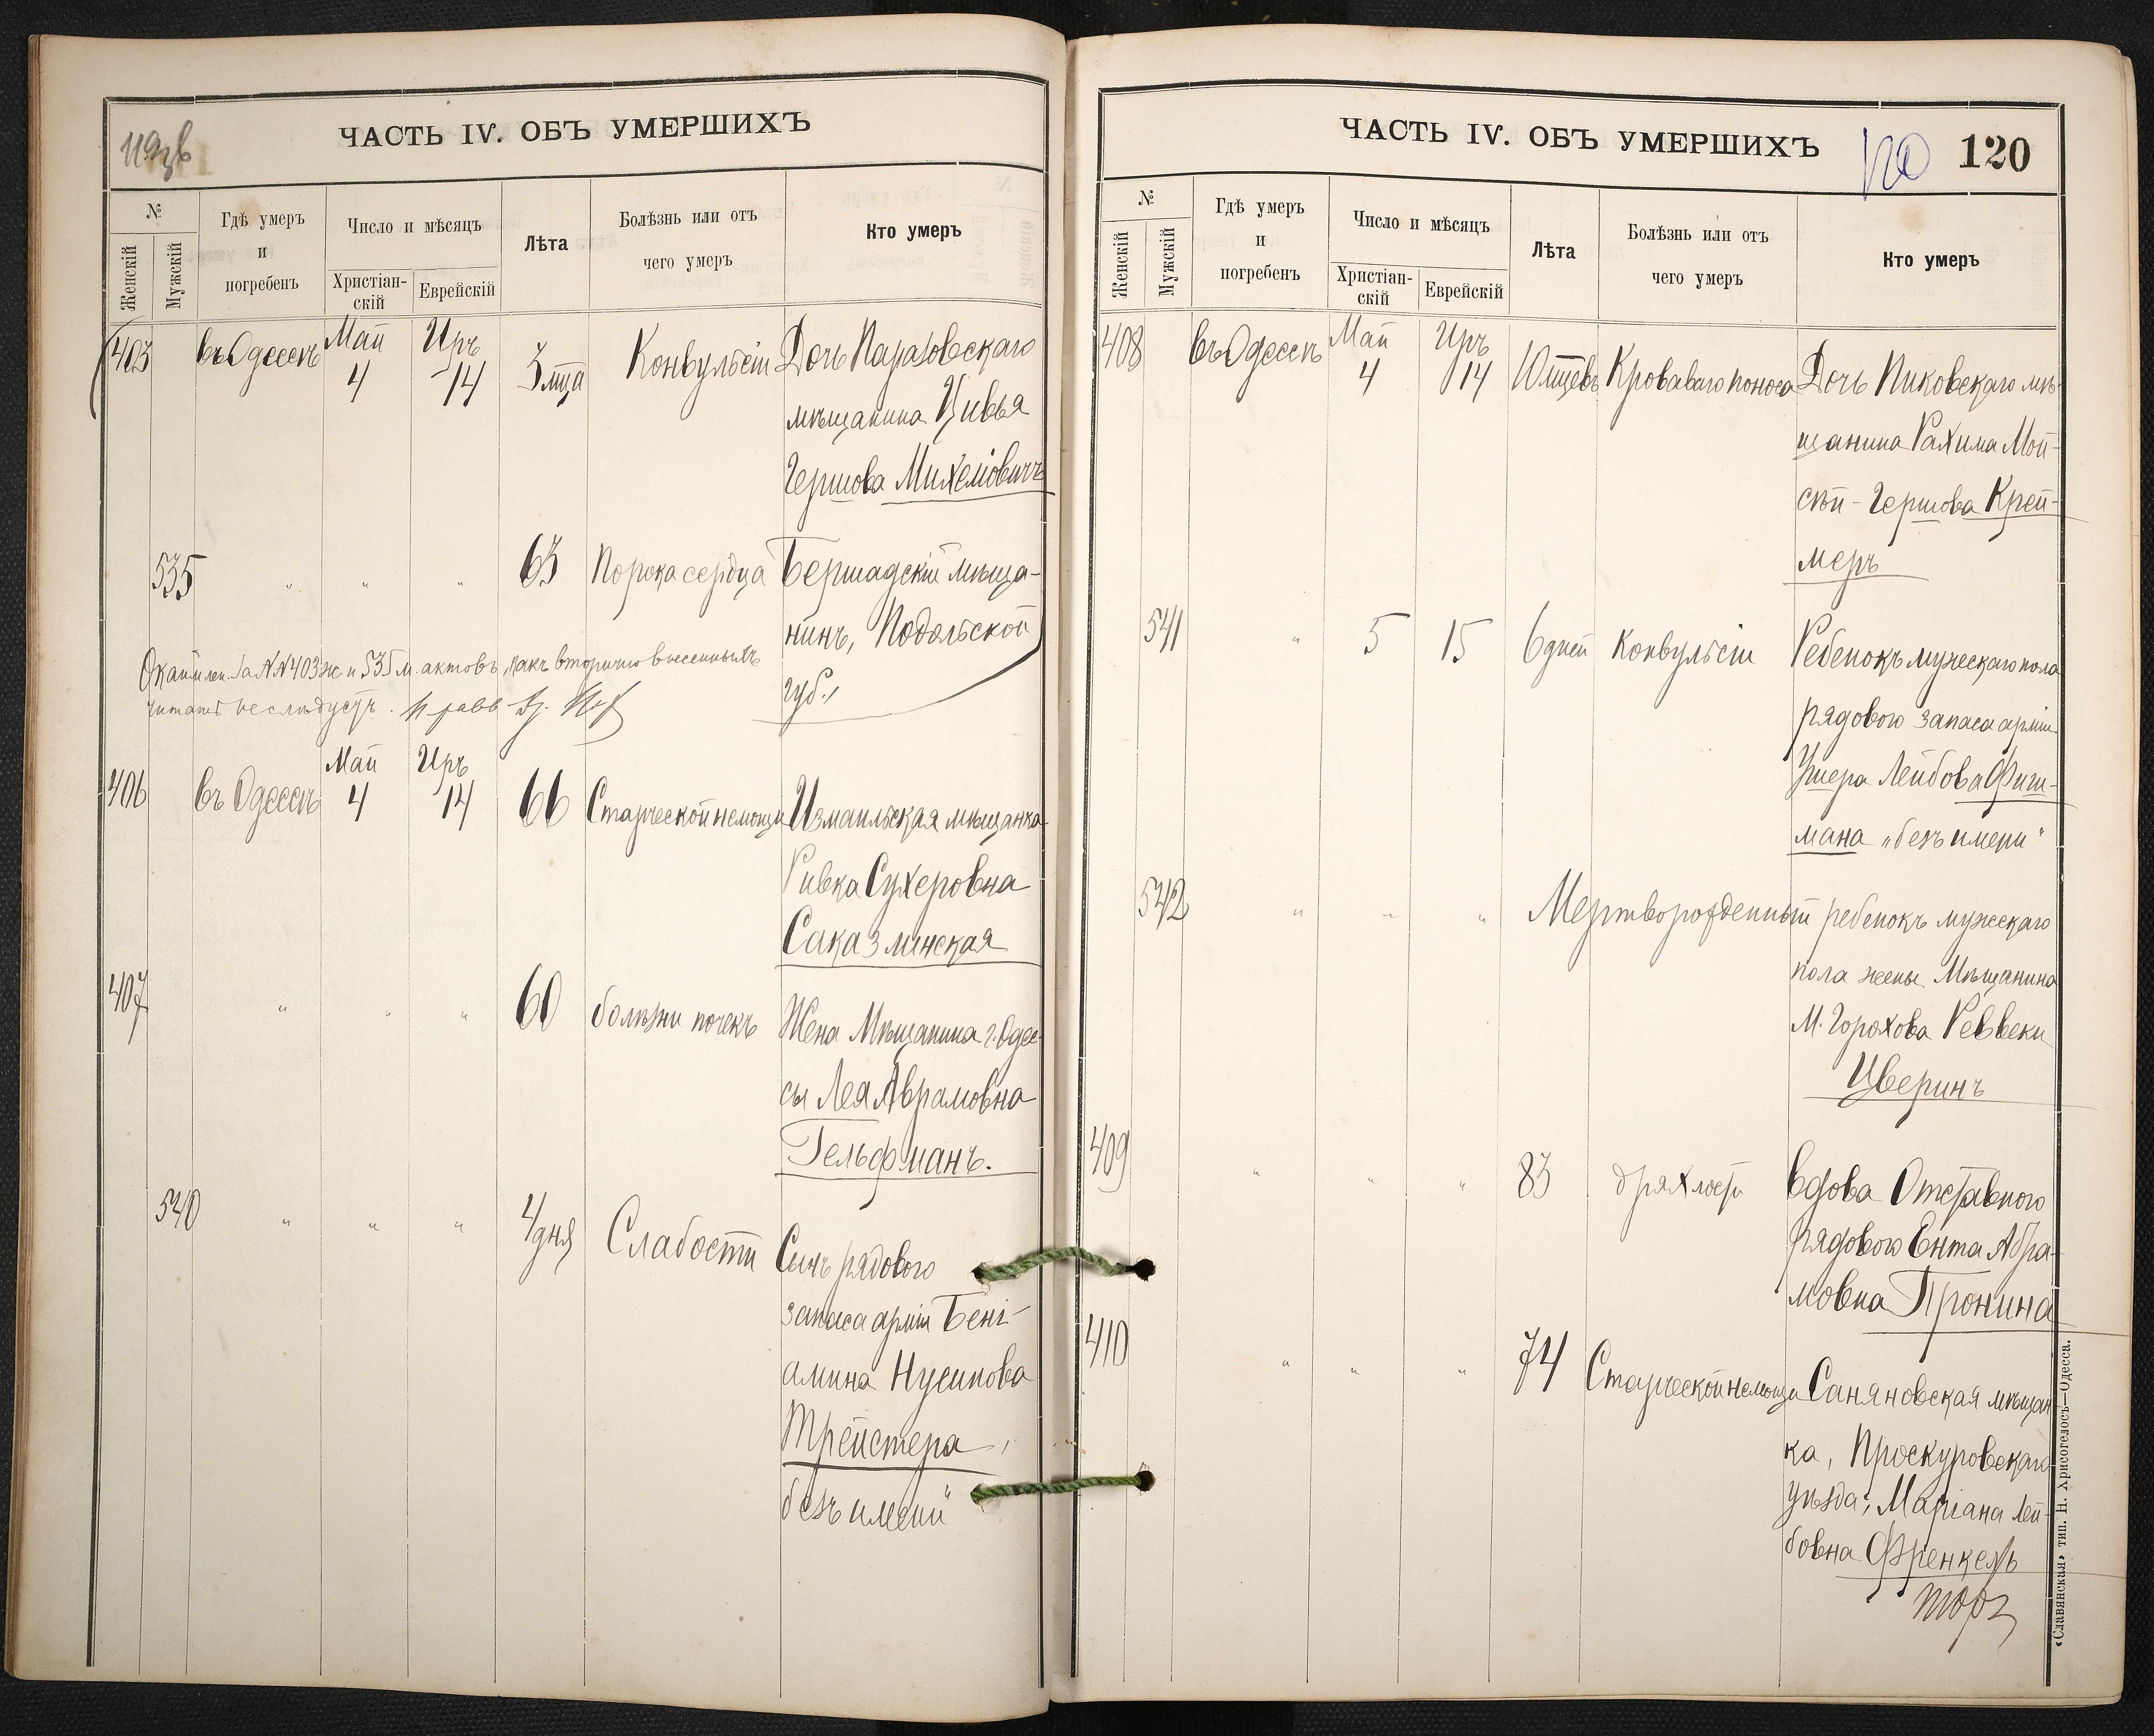 119об
ЧАСТЬ IV. ОБЪ УМЕРШИХЪ
№
Женскій
Мужскій
Гдѣ умеръ
и
погребенъ
Число и мѣсяцъ
Христіан-
скій
Еврейскій
Лѣта
Болѣзнь или отъ
чего умеръ
Кто умеръ
403 въ Одессѣ Май 4 Иръ 14 3 мца Конвульсіи Дочь Паразовскаго
мѣщанина Цивья
Гершова Михелювичъ
535 " " " 63 Порока сердца Бершадскій мѣща-
нинъ, Подольской
губ.
Окаймлен. за №№ 403 ж и 535 м. актовъ, какъ вторично внесенныхъ
читать не слѣдуетъ.
406 въ Одессѣ Май 4 Иръ 14 66 Старческой немощи Измаильская мѣщанка
Ривка Сухеровна
Саказлинская
407 " " " 60 болѣзни почекъ Жена Мѣщанина г. Одес-
сы Лея Аврамовна
Гельфманъ.
540 " " " 4 дня Слабости Сынъ рядового
запаса арміи Бені-
амина Нусинова
Трейстера,
безъ имени"
ЧАСТЬ IV. ОБЪ УМЕРШИХЪ
120
120
№
Женскій
Мужскій
Гдѣ умеръ
и
погребенъ
Число и мѣсяцъ
Христіан-
скій
Еврейскій
Лѣта
Болѣзнь или отъ
чего умеръ
Кто умеръ
408 въ Одессѣ Май 4 Иръ 14 10 мцевъ Кроваваго поноса Дочь Пиковскаго мѣ-
щанина Рахима Мой-
сѣй-Гершова Крей-
меръ
541 " 5 15 6 дней Конвульсіи Ребенокъ мужескаго пола
рядового запаса арміи
Ушера Лейбова Фиш-
мана „безъ имени"
542 " " " Мертворожденный ребенокъ мужескаго
пола жены Мѣщанина
М. Горохова Реввеки
Цверинъ
409 " " " 83 дряхлости Вдова Отставного
рядового Ента Абра-
мовна Пронина
410 " " " 74 Старческой немощи Саняновская мѣщан-
ка, Проскуровскаго
уѣзда, Маріана Лей-
бовна Френкель
«Славянская» тип. Н. Хрисогелосъ—Одесса.